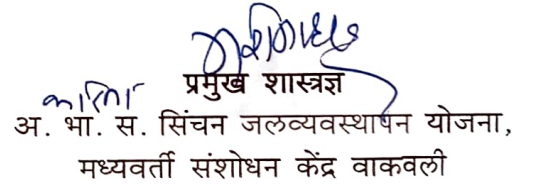 प्रमुख शास्त्रज्ञ
अ. भा. स. सिंचन जलव्यवस्थापन योजना,
मध्यवर्ती संशोधन केंद्र वाकवली